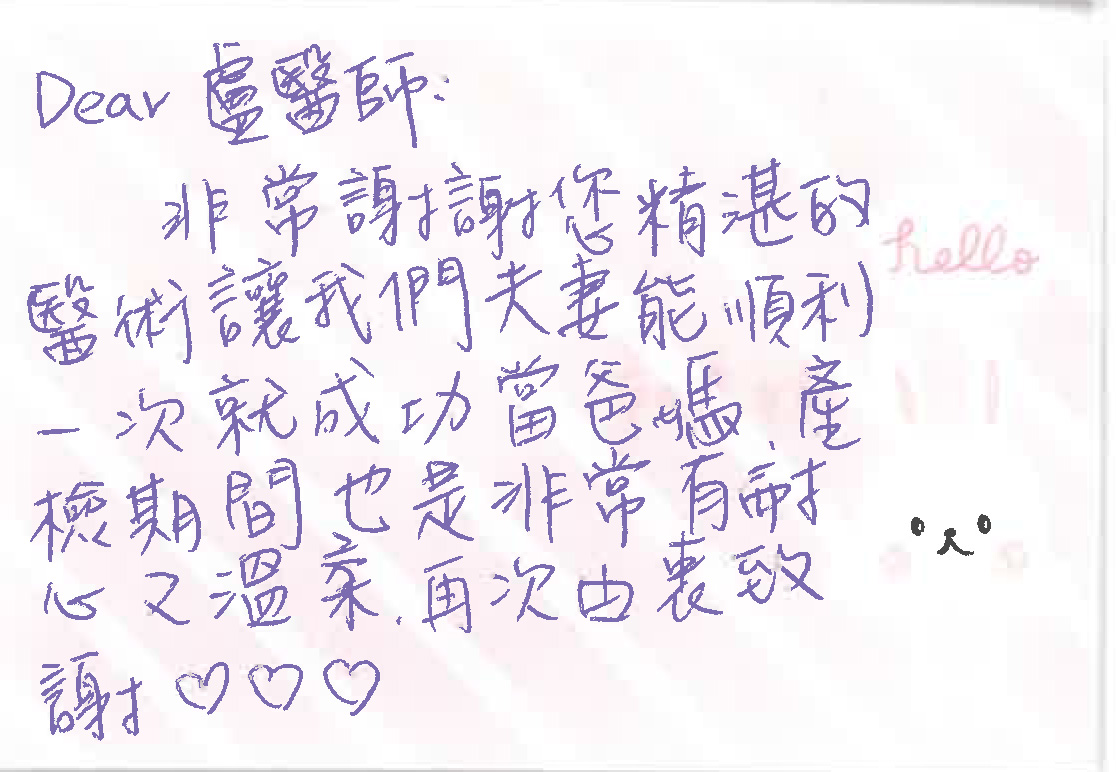 Dear 盧醫師:
非常謝謝您精湛的
hello
醫術讓我們夫妻能順利
一次就成功當爸媽,產
檢期間也是非常有耐
心又溫柔.再次由衷致
謝♡♡♡